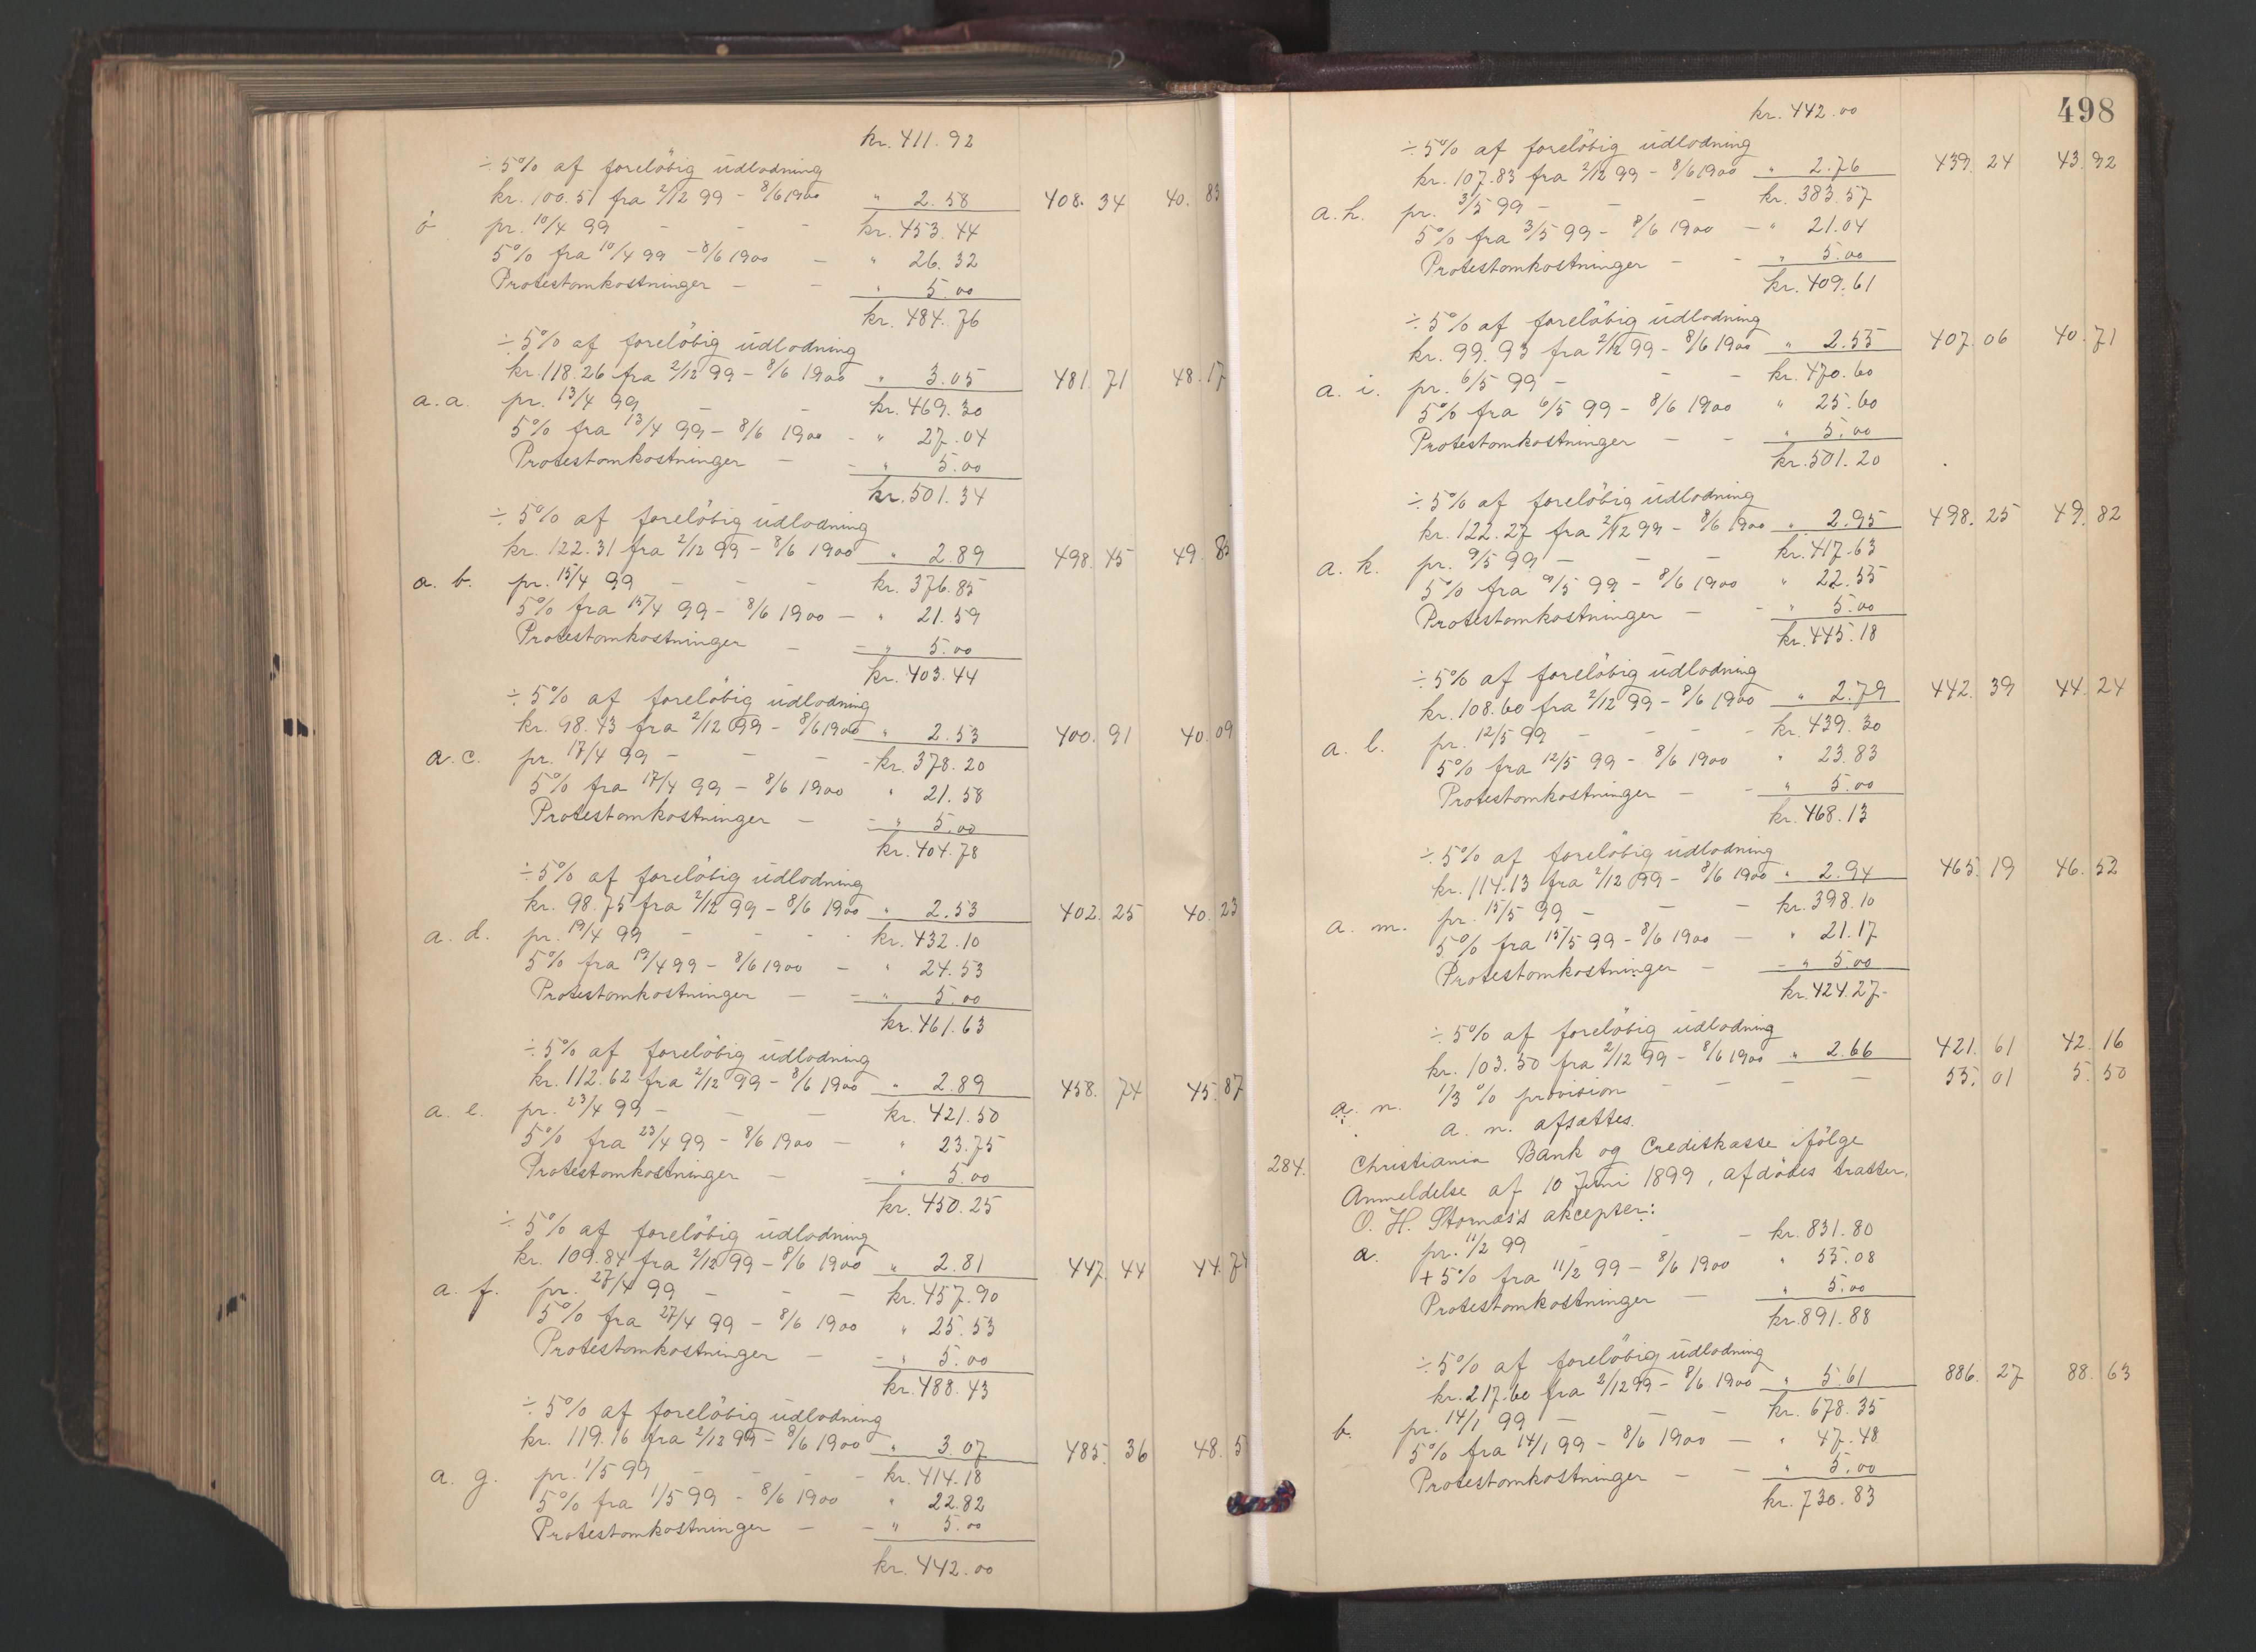 kr. 411.92
÷ 5% af foreløbig udlodning
kr. 100.51 fra 2/12 99 - 8/6 1900 " 2.58 408.34 40.83
ö pr. 10/4 99 - - - kr. 453.44
5% fra 10/4 99 - 8/6 1900 - " 26.32
Protestomkostninger - - " 5.00
kr. 484.76
÷ 5% af foreløbig udlodning
kr. 118.26 fra 2/12 99 - 8/6 1900 " 3.05 481.71 48.17
a. a. pr. 13/4 99 - - kr. 469.30
5% fra 13/4 99 - 8/6 1900 - " 27.04
Protestomkostninger - - " 5.00
kr. 501.34
÷ 5% af foreløbig udlodning
kr. 122.31 fra 2/12 99 - 8/6 1900 " 2.89 498.45 49.8
a. b. pr. 15/4 99 - - - kr. 376.85
5% fra 15/4 99 - 8/6 1900 - " 21.59
Protestomkostninger - - " 5.00
kr. 403.44
÷ 5% af foreløbig udlodning
kr. 98.43 fra 2/12 99 - 8/6 1900 " 2.53 400.91 40.09
a. c. pr. 17/4 99 - - - kr. 378.20
5% fra 17/4 99 - 8/6 1900 " 21.58
Protestomkostninger - - " 5.00
kr. 404.78
÷ 5% af foreløbig udlodning
kr. 98.75 fra 2/12 99 - 8/6 1900 " 2.53 402.25 40.23
a. d. pr. 19/4 99 - - - kr. 432.10
5% fra 19/4 99 - 8/6 1900 - " 24.53
Protestomkostninger - - " 5.00
kr. 461.63
÷ 5% af foreløbig udlodning
kr. 112.62 fra 2/12 99 - 8/6 1900 " 2.89 458.74 45.87
a. e. pr. 23/4 99 - - - kr. 421.50
5% fra 23/4 99 - 8/6 1900 - " 23.75
Protestomkostninger - - " 5.00
kr. 450.25
÷ 5% af foreløbig udlodning
kr. 109.84 fra 2/12 99 - 8/6 1900 " 2.81 447.44 44.74
a. f. pr. 27/4 99 - - - kr. 457.90
5% fra 27/4 99 - 8/6 1900 " 25.53
Protestomkostninger - - " 5.00
kr. 488.43
÷ 5% af foreløbig udlodning
kr. 119.16 fra 2/12 99 - 8/6 1900 " 3.07 485.36 48.5
a. g. pr. 1/5 99 - - - kr. 414.18
5% fra 1/5 99 - 8/6 1900 " 22.82
Protestomkostninger - - " 5.00
kr. 442.00
498
kr. 442.00
÷ 5% af foreløbig udlodning
kr. 107.83 fra 2/12 99 - 8/6 1900 " 2.76 439.24 43.92
a. h. pr. 3/5 99 - - - kr. 383.57
5% fra 3/5 99 - 8/6 1900 - " 21.04
Protestomkostninger - - " 5.00
kr. 409.61
÷ 5% af foreløbig udlodning
kr. 99.93 fra 2/12 99 - 8/6 1900 " 2.55 407.06 40.71
a. i. pr. 6/5 99 - - - kr. 470.60
5% fra 6/5 99 - 8/6 1900 " 25.60
Protestomkostninger - - " 5.00
kr. 501.20
÷ 5% af foreløbig udlodning
kr. 122.27 fra 2/12 99 - 8/6 1900 " 2.95 498.25 49.82
a. k. pr. 9/5 99 - - - kr. 417.63
5% fra 9/5 99 - 8/6 1900 " 22.55
Protestomkostninger - - " 5.00
kr. 445.18
÷ 5% af foreløbig udlodning
kr. 108.60 fra 2/12 99 - 8/6 1900 " 2.79 442.39 44.24
a. l. pr. 12/5 99 - - - kr. 439.30
5% fra 12/5 99 - 8/6 1900 " 23.83
Protestomkostninger - - " 5.00
kr. 468.13
÷ 5% af foreløbig udlodning
kr. 114.13 fra 2/12 99 - 8/6 1900 " 2.94 465.19 46.52
a. m. pr. 15/5 99 - - - kr. 398.10
5% fra 15/5 99 - 8/6 1900 - " 21.17
Protestomkostninger - - " 5.00
kr. 424.27-
÷ 5% af foreløbig udlodning
kr. 103.50 fra 2/12 99 - 8/6 1900 " 2.66 421.61 42.16
a. n. 1/3 % provision - - - - 55.01 5.50
a. n. afsættes.
284. Christiania Bank og Creditkasse ifølge
Anmeldelse af 10 Juni 1899, afdødes tratter,
O. H. Stornæs's akcepter:
a. pr. 11/2 99 - - - kr. 831.80
+ 5% fra 11/2 99 - 8/6 1900 " 55.08
Protestomkostninger - " 5.00
kr. 891.88
÷ 5% af foreløbig udlodning
kr. 217.60 fra 2/12 99 - 8/6 1900 " 5.61 886.27 88.63
b. pr. 14/1 99 - - - kr. 678.35
5% fra 14/1 99 - 8/6 1900 - " 47.48
Protestomkostninger - - " 5.00
kr. 730.83